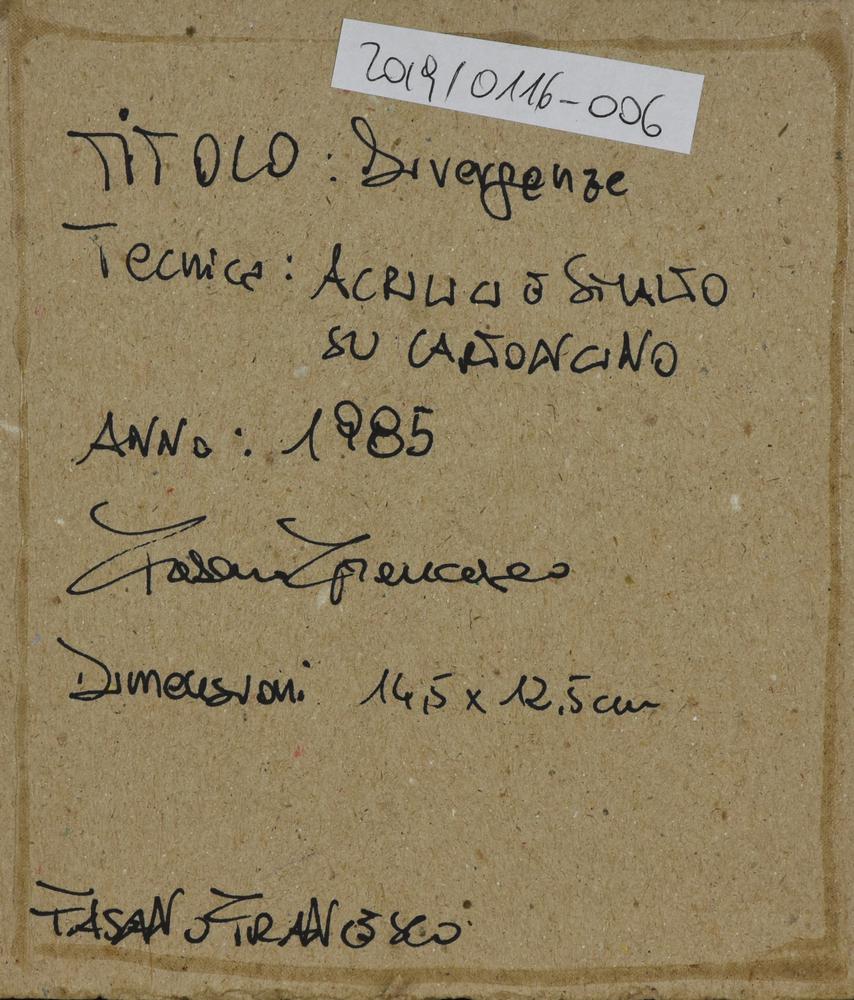 2019/0116-006
TITOLO: Divergenze
Tecnica: ACRILICI E SMALTO
SU CARTONCINO
ANNO: 1985
Fasan Francesco
Dimensioni 14,5 x 12,5 cm
FASAN FRANCESCO